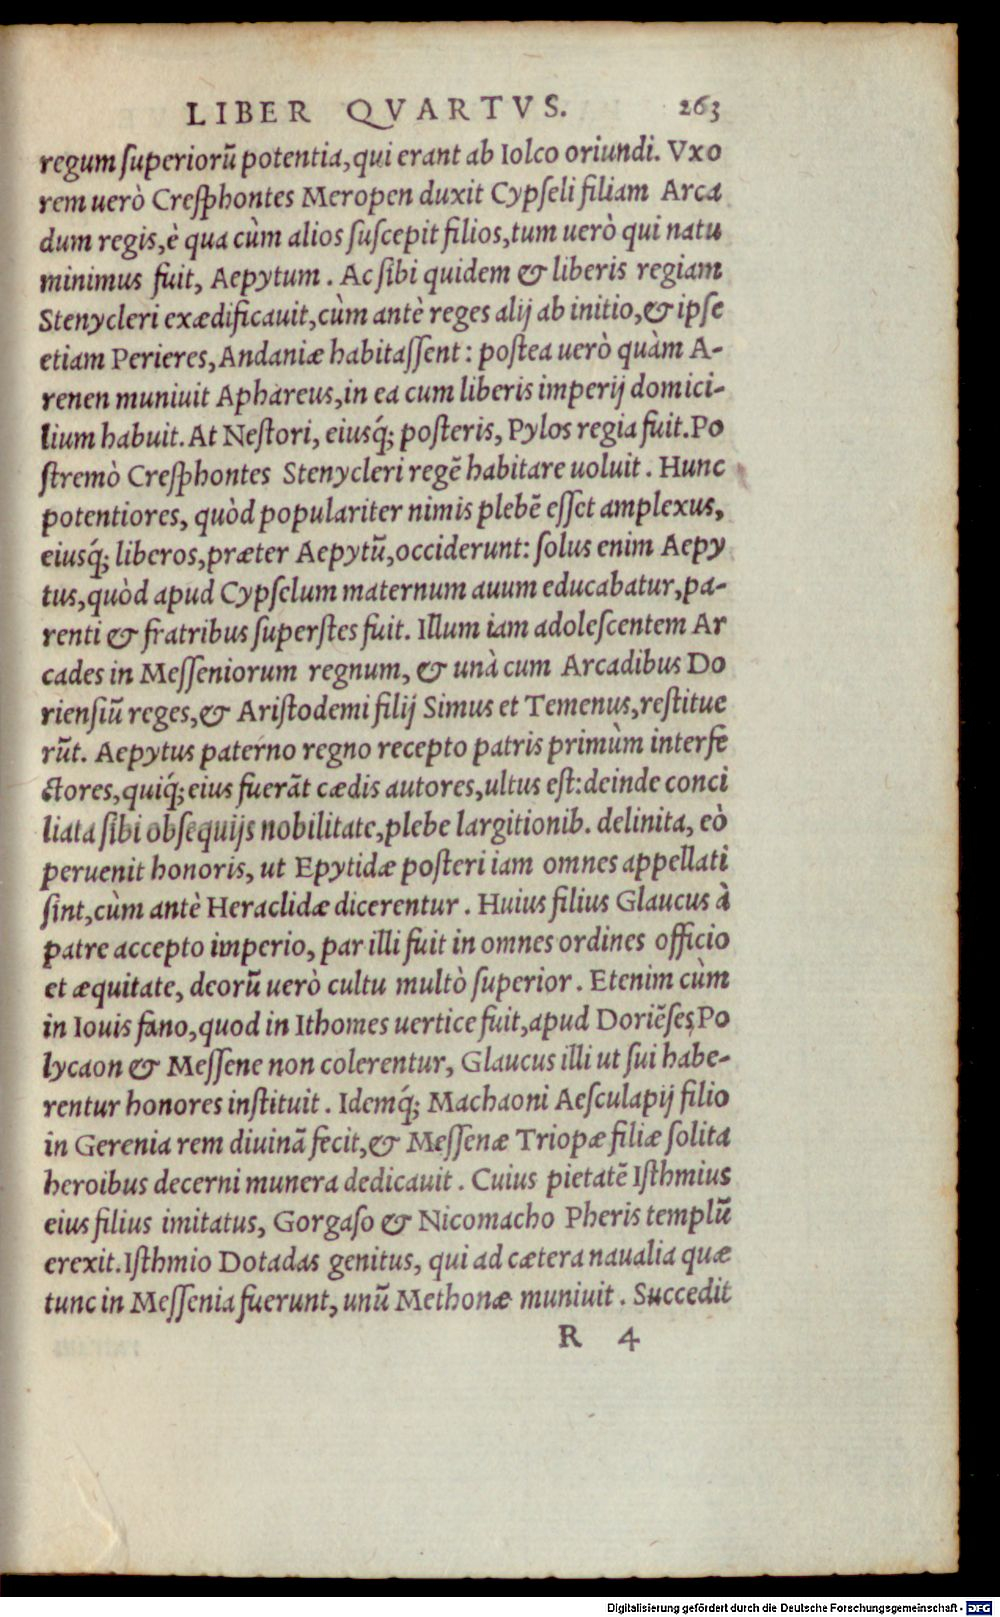 LIBER QVARTVS. 263
regum superiorũ potentia, qui erant ab Iolco oriundi. Vxo
rem uerò Cresphontes Meropen duxit Cypseli filiam Arca
dum regis, è qua cùm alios suscepit filios, tum uerò qui natu
minimus fuit, Aepytum. Ac sibi quidem & liberis regiam
Stenycleri exædificauit, cùm antè reges alij ab initio, & ipse
etiam Perieres, Andaniæ habitassent: postea uerò quàm A-
renen muniuit Aphareus, in ea cum liberis imperij domici-
lium habuit. At Nestori, eiusq́; posteris, Pylos regia fuit. Po
stremò Cresphontes Stenycleri regẽ habitare uoluit. Hunc
potentiores, quòd populariter nimis plebẽ esset amplexus,
eiusq́; liberos, præter Aepytũ, occiderunt: solus enim Aepy
tus, quòd apud Cypselum maternum auum educabatur, pa-
renti & fratribus superstes fuit. Illum iam adolescentem Ar
cades in Messeniorum regnum, & unà cum Arcadibus Do
riensiũ reges, & Aristodemi filij Simus et Temenus, restitue
rũt. Aepytus paterno regno recepto patris primùm interfe
ctores, quiq́; eius fuerãt cædis autores, ultus est: deinde conci
liata sibi obsequijs nobilitate, plebe largitionib. delinita, eò
peruenit honoris, ut Epytidæ posteri iam omnes appellati
sint, cùm antè Heraclidæ dicerentur. Huius filius Glaucus à
patre accepto imperio, par illi fuit in omnes ordines officio
et æquitate, deorũ uerò cultu multò superior. Etenim cùm
in Iouis fano, quod in Ithomes uertice fuit, apud Doriẽses, Po
lycaon & Messene non colerentur, Glaucus illi ut sui habe-
rentur honores instituit. Idemq́; Machaoni Aesculapij filio
in Gerenia rem diuinã fecit, & Messenæ Triopæ filiæ solita
heroibus decerni munera dedicauit. Cuius pietatẽ Isthmius
eius filius imitatus, Gorgaso & Nicomacho Pheris templũ
erexit. Isthmio Dotadas genitus, qui ad cætera naualia quæ
tunc in Messenia fuerunt, unũ Methonæ muniuit. Succedit
R 4
Digitalisierung gefördert durch die Deutsche Forschungsgemeinschaft - DFG